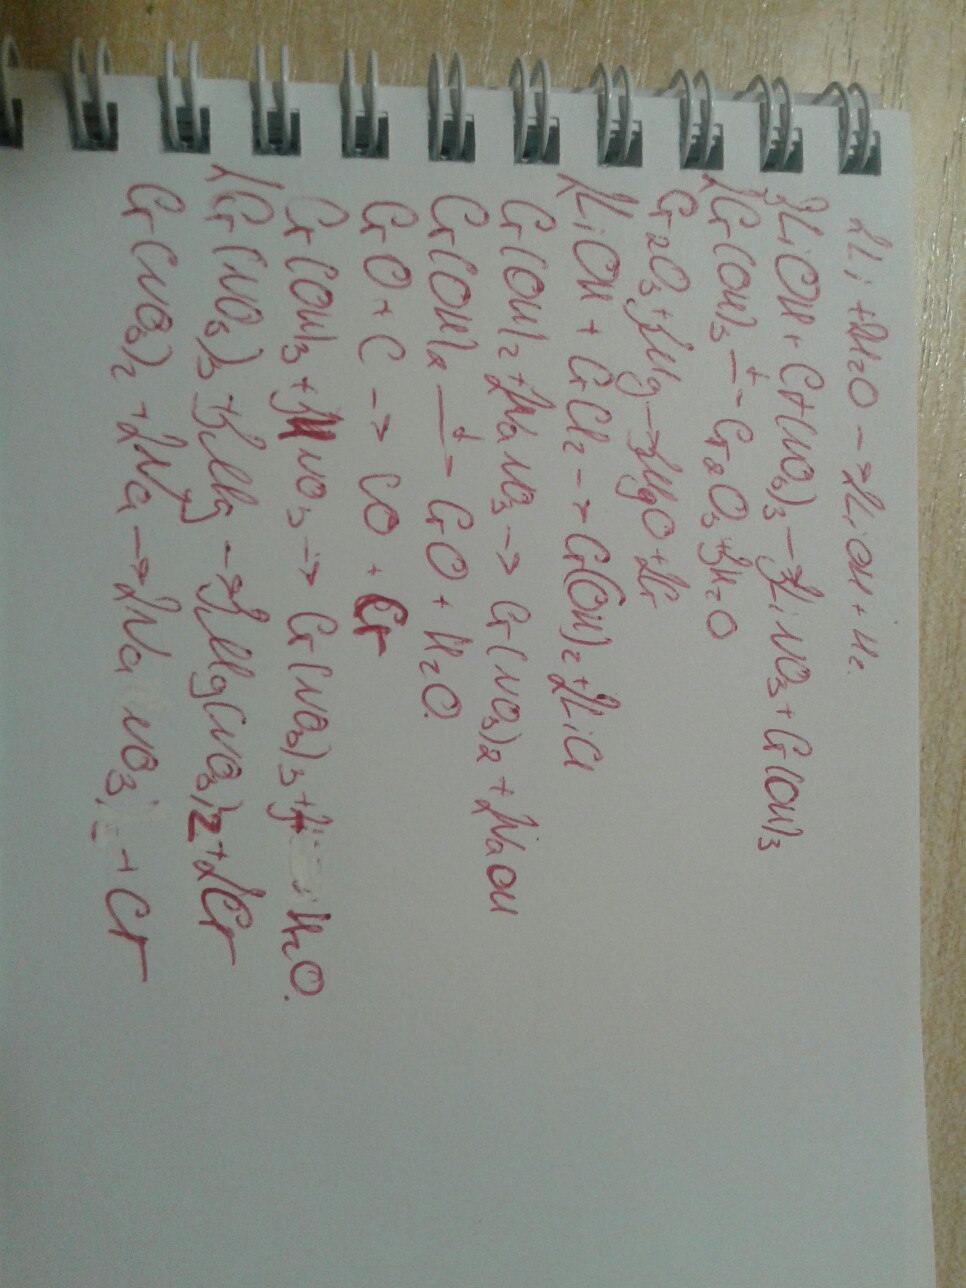 2Li + 2H2O → 2LiOH + H2.
3LiOH + Cr(NO3)3 → 3LiNO3 + Cr(OH)3
2Cr(OH)3 –t→ Cr2O3 + 3H2O
Cr2O3 + 3Mg → 3MgO + 2Cr
2LiOH + CrCl2 → Cr(OH)2 + 2LiCl
Cr(OH)2 + 2NaNO3 → Cr(NO3)2 + 2NaOH
Cr(OH)2 –t→ CrO + H2O.
CrO + C → CO + Cr
Cr(OH)3 + 3HNO3 → Cr(NO3)3 + 3H2O.
2Cr(NO3)3 + 3Mg → 3Mg(NO3)2 + 2Cr
Cr(NO3)2 + 2Na → 2NaNO3 + Cr